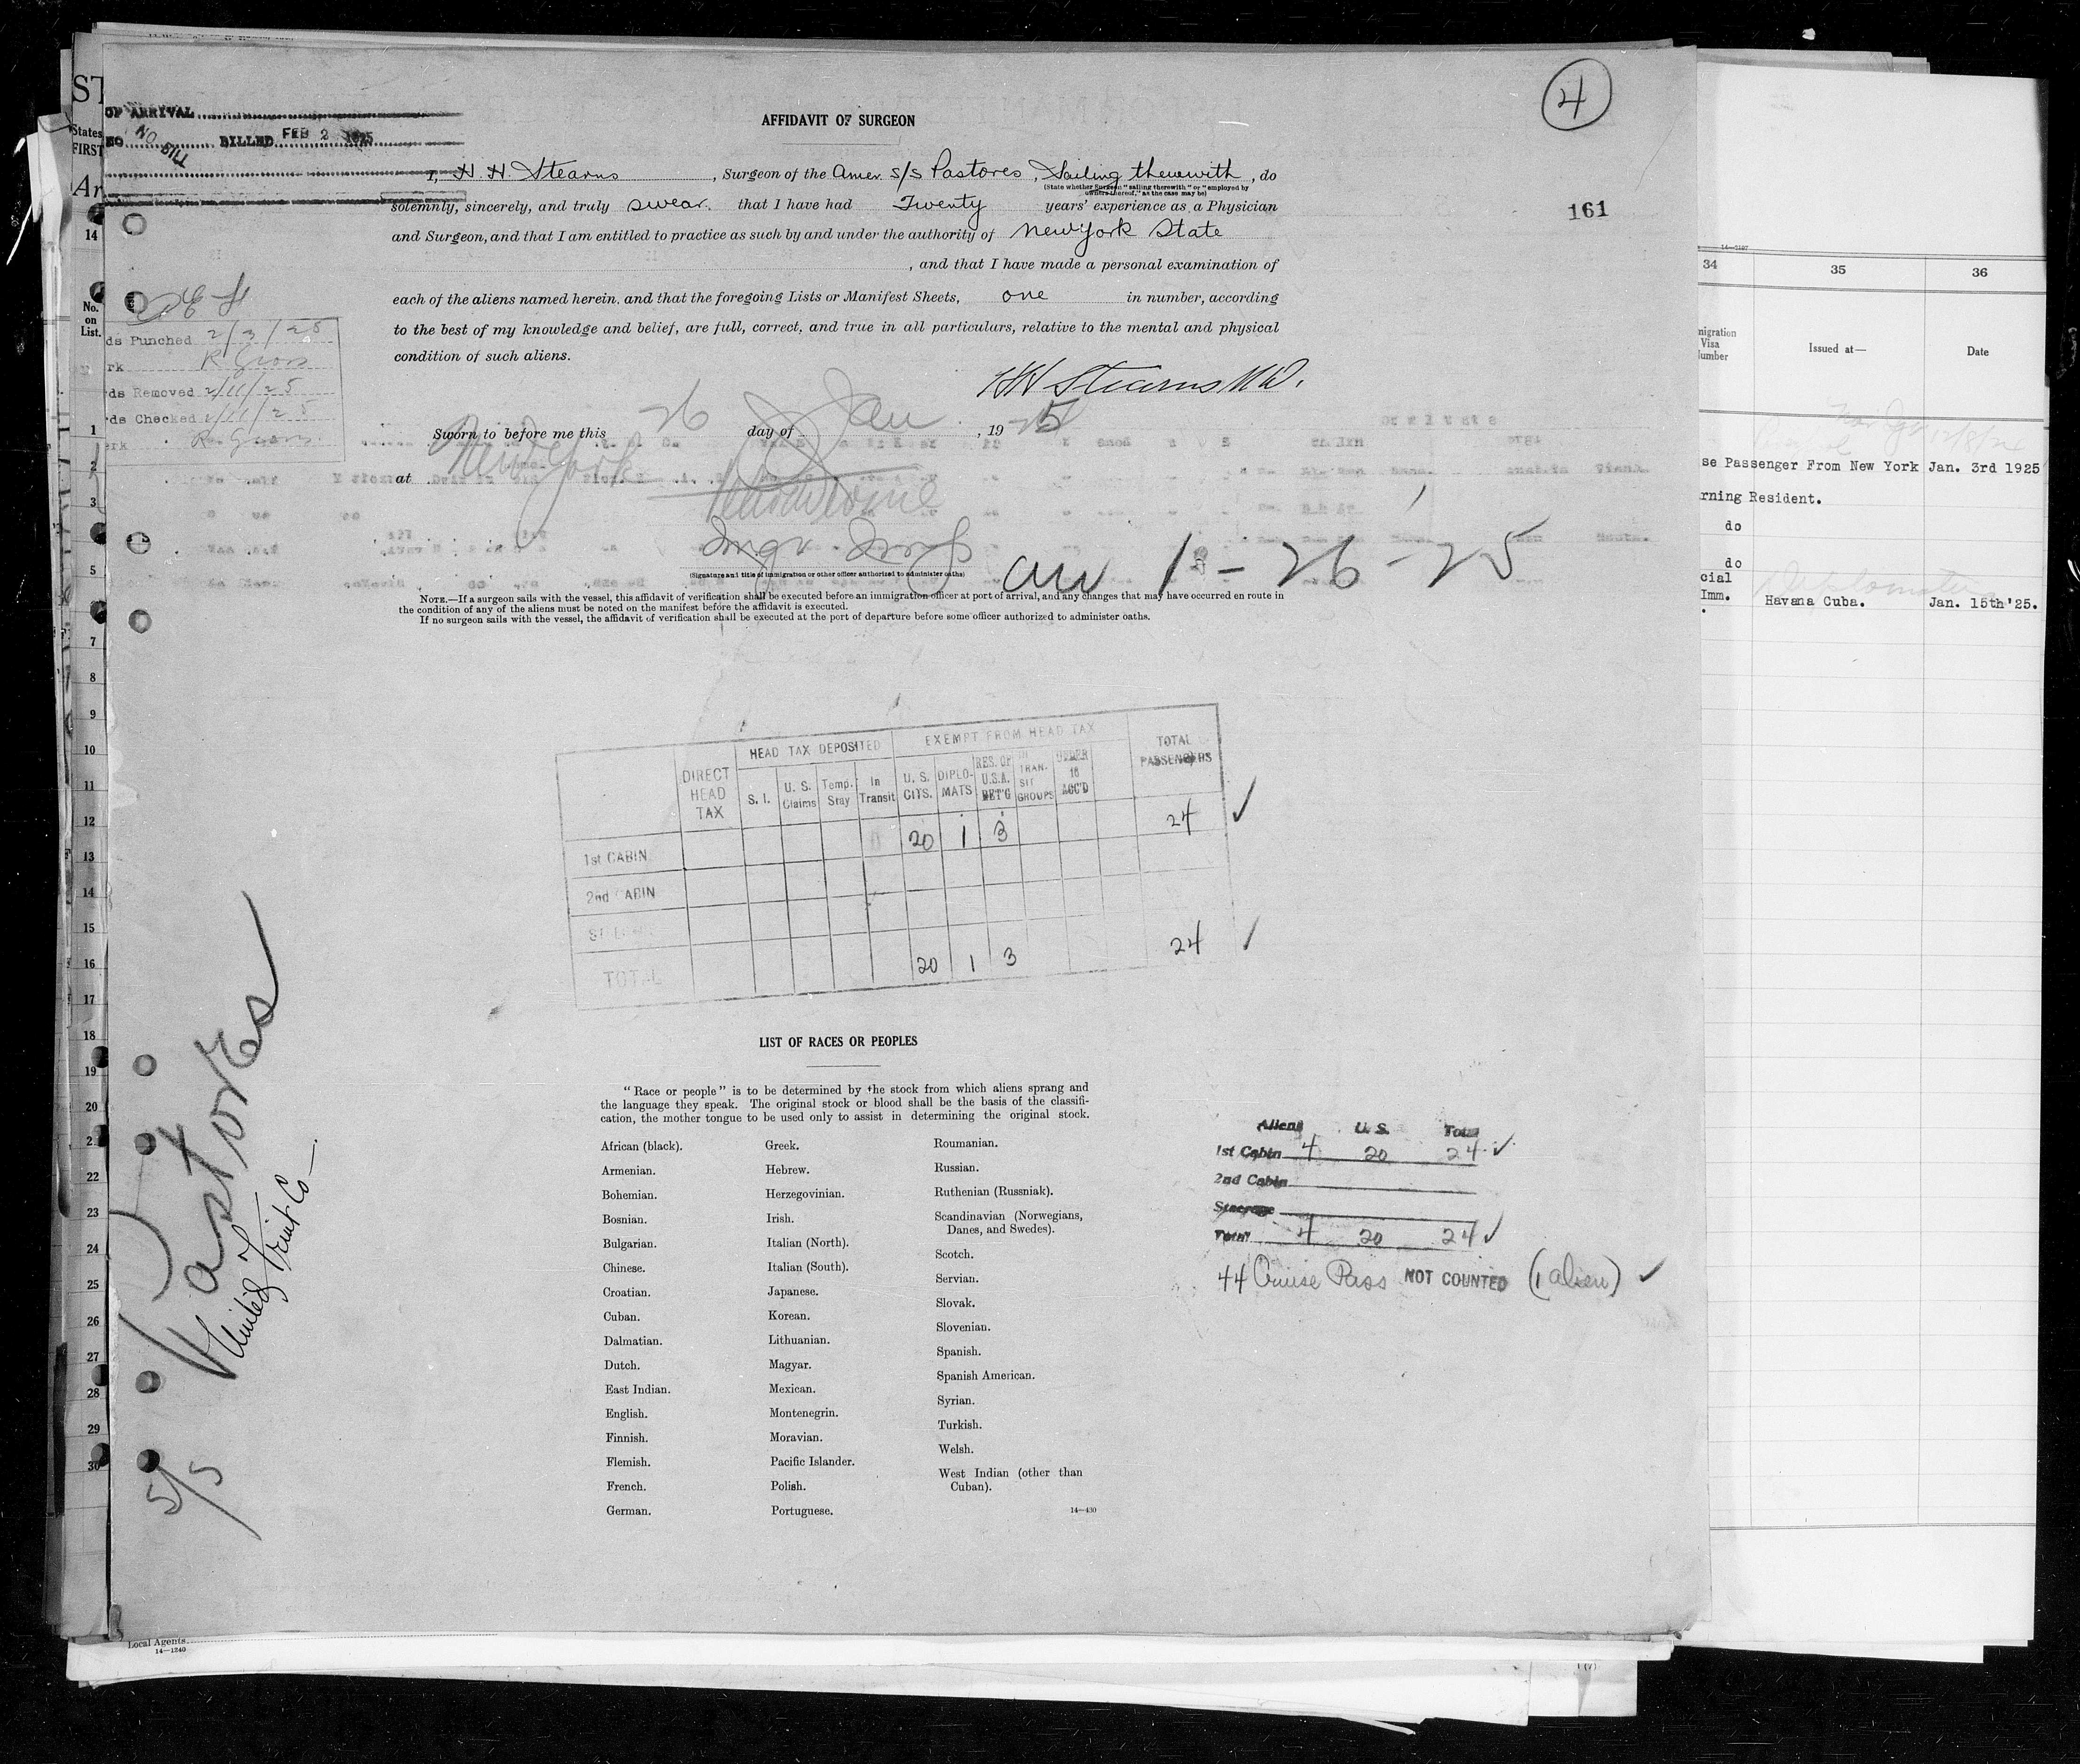 ST
OF ARRIVAL
States
NO BILL
BILLED FEB 2 1925
FIRST
4
AFFIDAVIT OF SURGEON
I, H. H. Stearns, Surgeon of the Amer. S/S Pastores, Sailing therewith, do
(State whether Surgeon "sailing therewith" or "employed by
owners thereof," as the case may be)
solemnly, sincerely, and truly swear. that I have had Twenty years' experience as a Physician
and Surgeon, and that I am entitled to practice as such by and under the authority of New York State
, and that I have made a personal examination of
each of the aliens named herein, and that the foregoing Lists or Manifest Sheets, one in number, according
to the best of my knowledge and belief, are full, correct, and true in all particulars, relative to the mental and physical
condition of such aliens.
HH Stearns M.D.
Sworn to before me this 26 day of Jan, 1925
at New York
(Signature and title of immigration or other officer authorized to administer oaths)
1-26-25
NOTE.—If a surgeon sails with the vessel, this affidavit of verification shall be executed before an immigration officer at port of arrival, and any changes that may have occurred en route in
the condition of any of the aliens must be noted on the manifest before the affidavit is executed.
If no surgeon sails with the vessel, the affidavit of verification shall be executed at the port of departure before some officer authorized to administer oaths.
161
14
No.
on
List.
ds Punched 2/3/25
rk R Gross
ds Removed 2/11/25
ds Checked 2/11/25
erk R. Gross
1
2
3
5
7
8
9
10
11
12
13
14
15
16
17
18
19
20
21
22
23
24
25
26
27
28
29
30
DIRECT HEAD TAX
HEAD TAX DEPOSITED
EXEMPT FROM HEAD TAX
TOTAL PASSENGERS
S. I.
U. S. Claims
Temp. Stay
In Transit
U. S. CITS.
DIPLOMATS
RES. OF U.S.A. RET'G
TRANSIT GROUPS
UNDER 16 ACC'D
1st CABIN 20 1 3 24
2nd CABIN
TOTAL 20 1 3 24
LIST OF RACES OR PEOPLES
"Race or people" is to be determined by the stock from which aliens sprang and
the language they speak. The original stock or blood shall be the basis of the classifi-
cation, the mother tongue to be used only to assist in determining the original stock.
African (black).
Armenian.
Bohemian.
Bosnian.
Bulgarian.
Chinese.
Croatian.
Cuban.
Dalmatian.
Dutch.
East Indian.
English.
Finnish.
Flemish.
French.
German.
Greek.
Hebrew.
Herzegovinian.
Irish.
Italian (North).
Italian (South).
Japanese.
Korean.
Lithuanian.
Magyar.
Mexican.
Montenegrin.
Moravian.
Pacific Islander.
Polish.
Portuguese.
Roumanian.
Russian.
Ruthenian (Russniak).
Scandinavian (Norwegians,
Danes, and Swedes).
Scotch.
Servian.
Slovak.
Slovenian.
Spanish.
Spanish American.
Syrian.
Turkish.
Welsh.
West Indian (other than
Cuban).
14—430
Aliens U. S. Total
1st Cabin 4 20 24
2nd Cabin
Steerage
Total 4 20 24
44 Cruise Pass NOT COUNTED (1 alien)
Pastores
United Fruit Co
5/5
14—1297
34
35
36
migration
Visa
Number
Issued at—
Date
se Passenger From New York Jan. 3rd 1925
rning Resident.
do
do
cial
Imm.
Havana Cuba. Jan. 15th'25.
Local Agents
14—1240